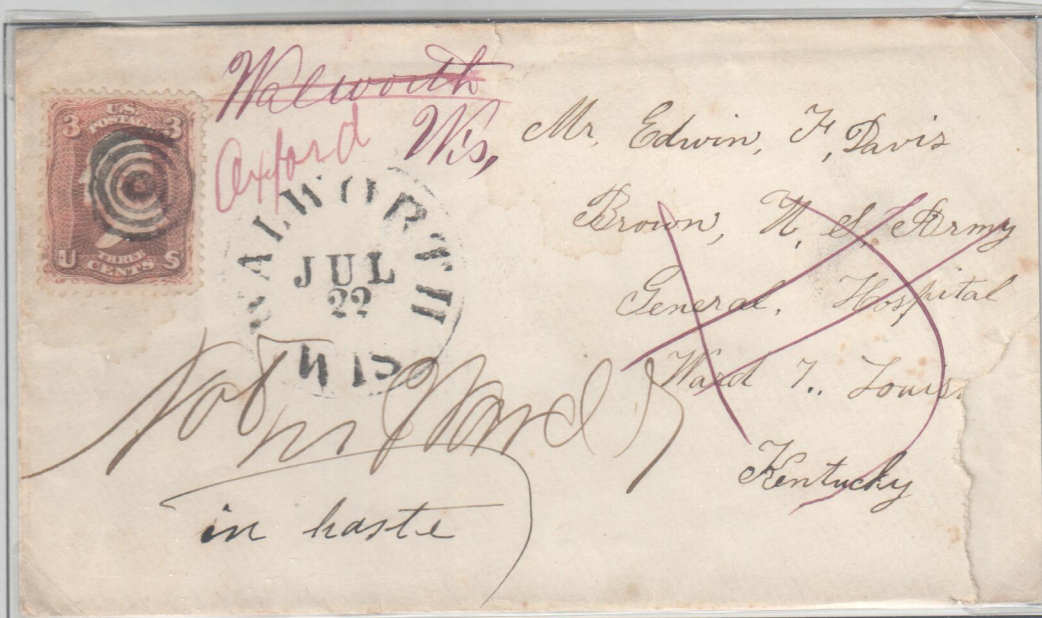 Walworth
Oxford
Wis,
3 U.S. 3
POSTAGE
THREE
U CENTS S
WALWORTH
JUL
22
WIS
Mr. Edwin, F, Davis
Brown, U, S, Army
General, Hospital
Ward 7., Louis
Kentucky
Not in Ward 7
in haste